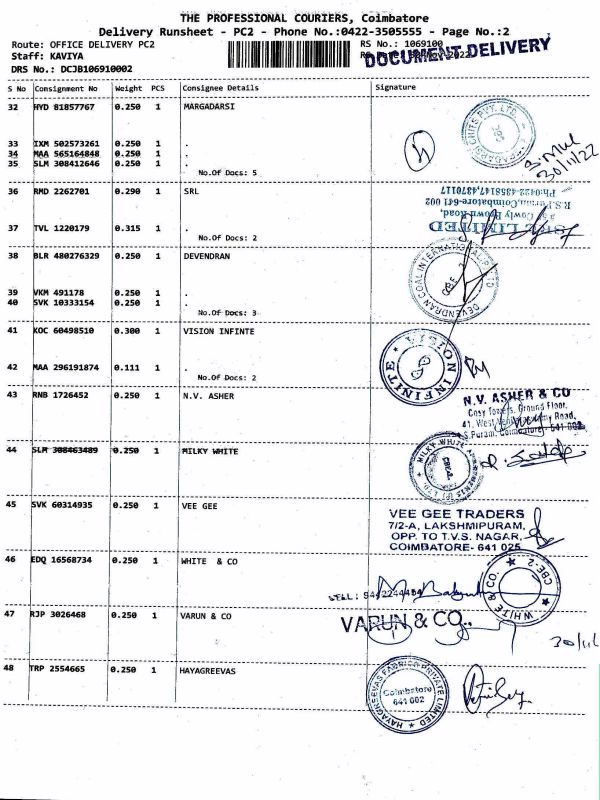 THE PROFESSIONAL COURIERS, Coimbatore
Delivery Runsheet - PC2 - Phone No.:0422-3505555 - Page No.:2
Route: OFFICE DELIVERY PC2
RS No.: 1069100
Staff: KAVIYA
DOCUMENT DELIVERY
DRS No.: DCJB106910002
S No Consignment No Weight PCS Consignee Details Signature
32 HYD 81857767 0.250 1 MARGADARSI
33 IXM 502573261 0.250 1 .
34 MAA 565164848 0.250 1 .
35 SLM 308412646 0.250 1 .
No.Of Docs: 5
30/11/22
36 RMD 2262701 0.290 1 SRL
Ph:0422-4358147,4370117
R.S.Puram, Coimbatore-641 002
Cowly Brown Road,
LIMITED
37 TVL 1220179 0.315 1 .
No.Of Docs: 2
38 BLR 480276329 0.250 1 DEVENDRAN
DEVENDRAN COAL INTERNATIONAL
39 VKM 491178 0.250 1 .
40 SVK 10333154 0.250 1 .
No.Of Docs: 3
41 KOC 60498510 0.300 1 VISION INFINTE
VISION INFINITE
42 MAA 296191874 0.111 1 .
No.Of Docs: 2
43 RNB 1726452 0.250 1 N.V. ASHER
N.V. ASHER & CO
Cosy Towers, Ground Floor,
41, West Road,
S.Puram, Coimbatore- 641 002
44 SLM 308463489 0.250 1 MILKY WHITE
MILKY WHITE
45 SVK 60314935 0.250 1 VEE GEE
VEE GEE TRADERS
7/2-A, LAKSHMIPURAM,
OPP. TO T.V.S. NAGAR,
COIMBATORE- 641 025
46 EDQ 16568734 0.250 1 WHITE & CO
WHITE & CO. CBE-2
47 RJP 3026468 0.250 1 VARUN & CO
VARUN & CO.,
30/11
48 TRP 2554665 0.250 1 HAYAGREEVAS
HAYAGREEVAS FABRICS PRIVATE LIMITED
Coimbatore
641 002